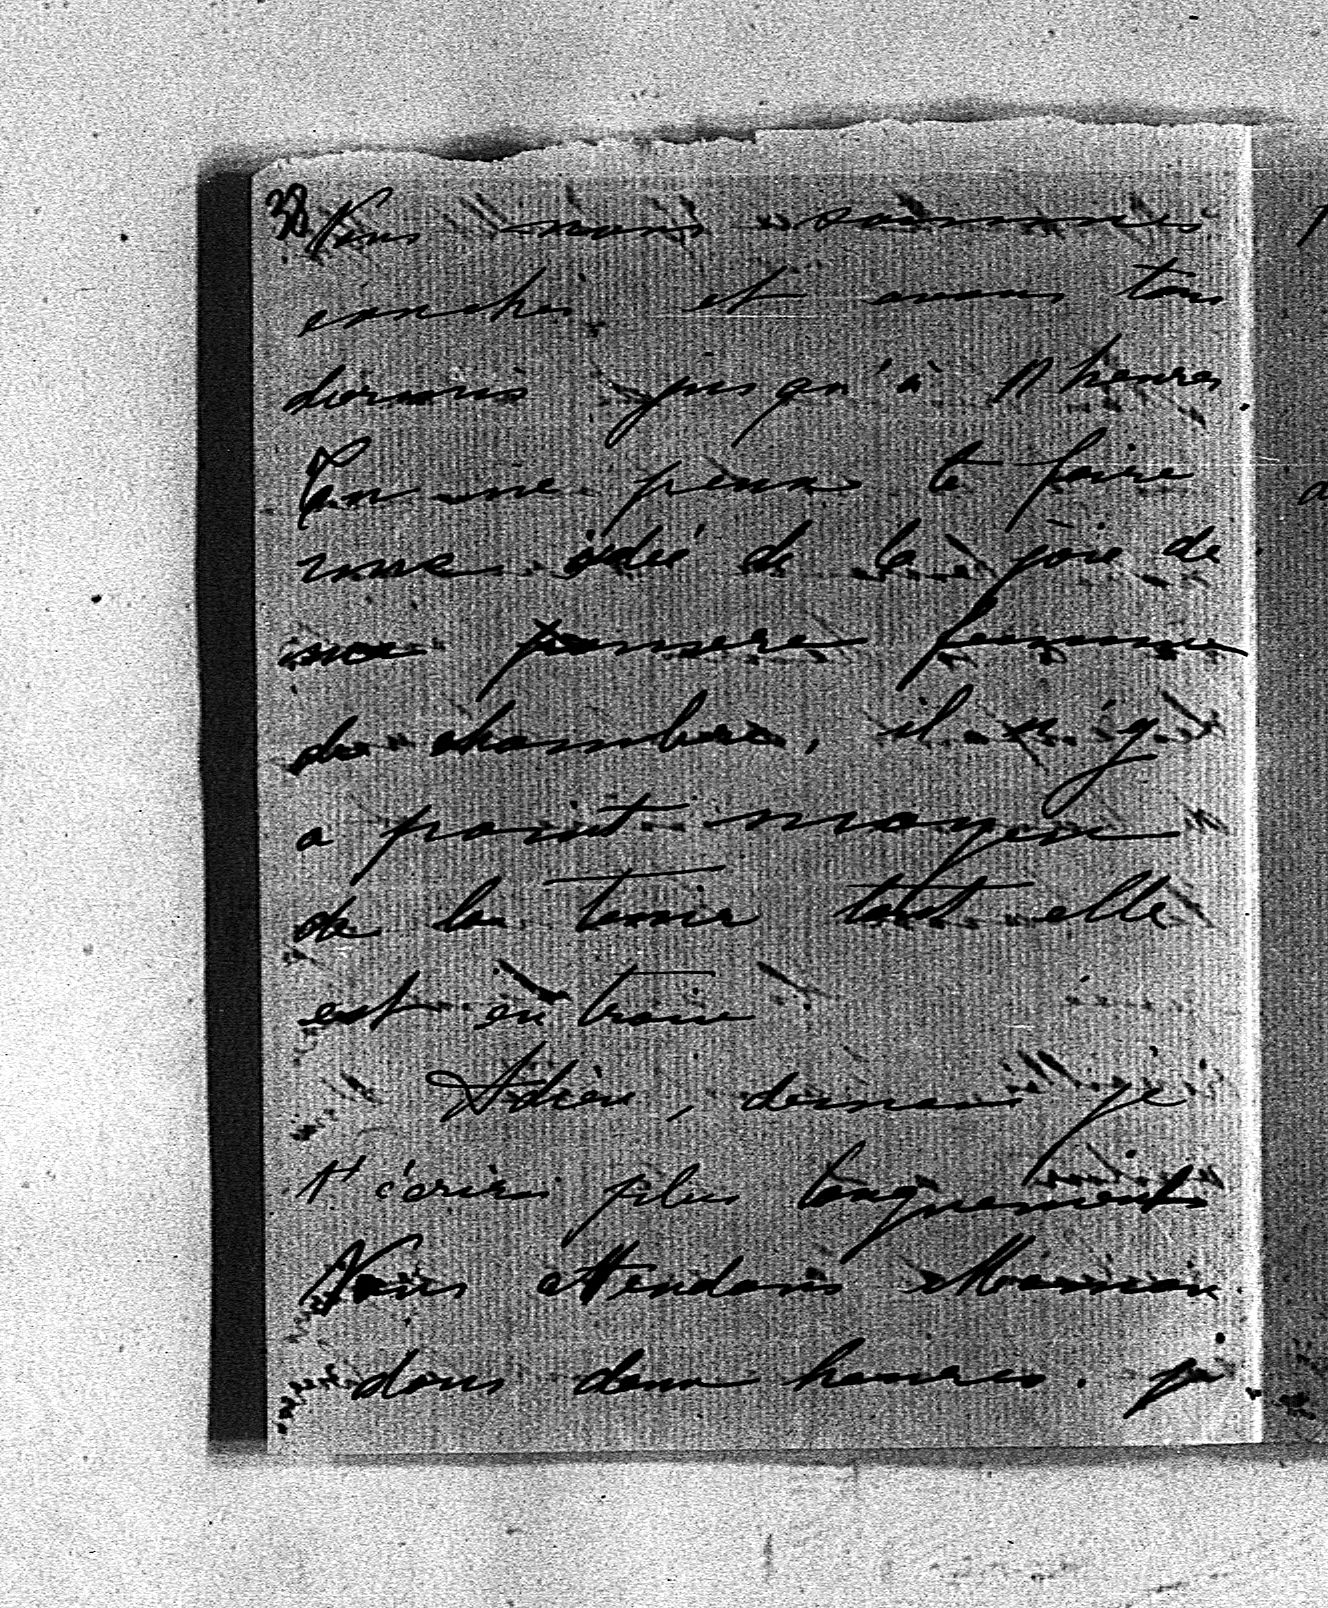 38
Nous nous sommes
couchés et avons tous
dormis jusqu'à 11 heures
Tu ne peux te faire
une idée de la joie de
ma pauvre femme
de chambre, il n'y
a point moyen
de la tenir tant elle
est en train
Adieu, demain je
t'écrirai plus longuement
Nous attendons Maman
dans deux heures. je